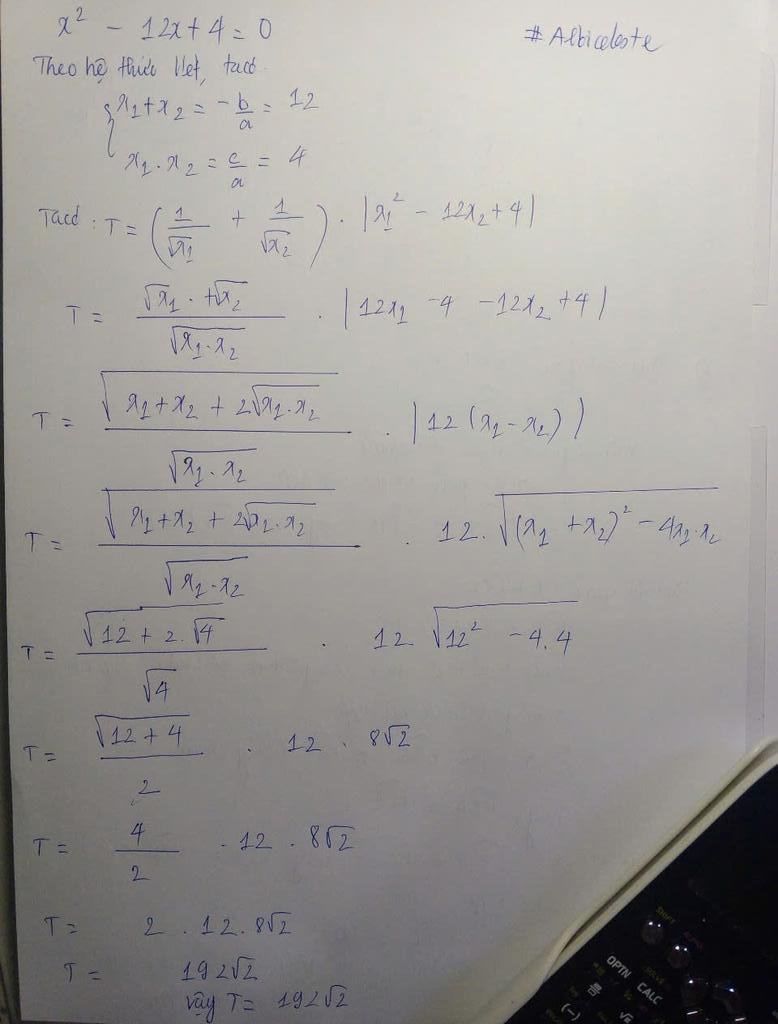 x² - 12x + 4 = 0
# Albiceleste
Theo hệ thức Viet, ta có
{ x₁ + x₂ = -b/a = 12
x₁ . x₂ = c/a = 4
Ta có : T = (1/√x₁ + 1/√x₂) . |x₁² - 12x₂ + 4|
T = (√x₁ . +√x₂)/√(x₁.x₂) . |12x₁ - 4 - 12x₂ + 4|
T = √(x₁ + x₂ + 2√(x₁.x₂))/√(x₁.x₂) . |12(x₁ - x₂)|
T = √(x₁ + x₂ + 2√(x₁.x₂))/√(x₁.x₂) . 12.√((x₁ + x₂)² - 4x₁.x₂)
T = √(12 + 2.√4)/√4 . 12 √(12² - 4.4)
T = √(12 + 4)/2 . 12 . 8√2
T = 4/2 . 12 . 8√2
T = 2 . 12 . 8√2
T = 192√2
vậy T = 192√2
SHIFT
OPTN CALC
(-)